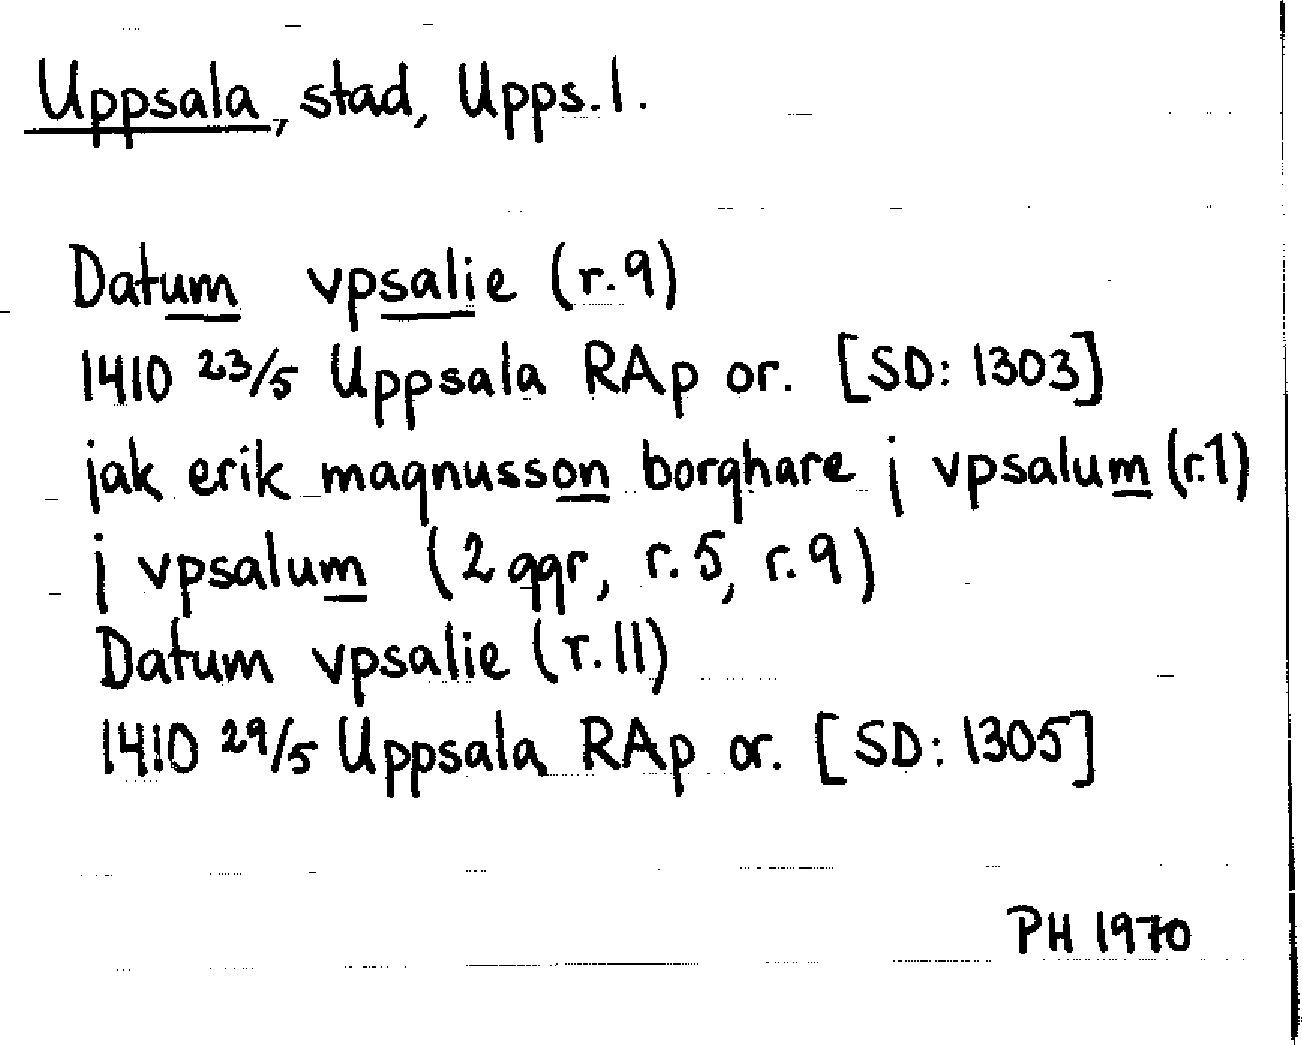 Uppsala, stad, Upps.l.
Datum vpsalie (r.9)
1410 23/5 Uppsala RAp or. [SD: 1303]
jak erik magnusson borghare j vpsalum (r.1)
j vpsalum (2 ggr, r.5, r.9)
Datum vpsalie (r.11)
1410 29/5 Uppsala RAp or. [SD: 1305]
PH 1970